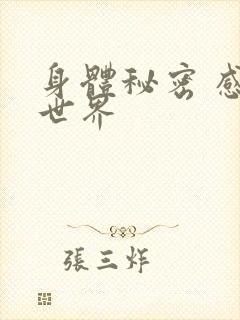 身體秘密 感
世界
張三炸